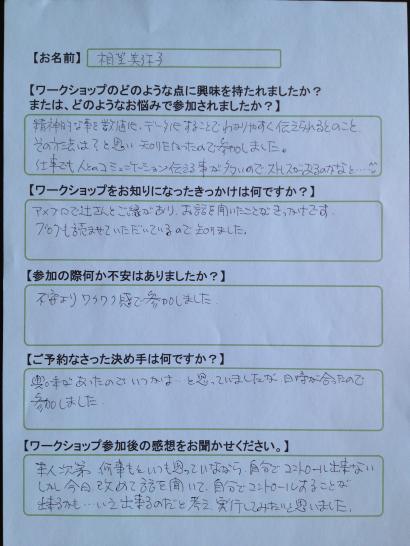 【お名前】 相星美弥子
【ワークショップのどのような点に興味を持たれましたか？
または、どのようなお悩みで参加されましたか？】
精神的な事を数値化、データ化することでわかりやすく伝えられるとのこと、
その方法は？と思い 知りたかったので参加しました。
仕事でも人とのコミュニケーション伝える事が多いのでストレスが減るのかなと…
【ワークショップをお知りになったきっかけは何ですか？】
アメブロで辻さんとご縁があり、お話を聞いたことがきっかけです。
ブログも読ませていただいているので知りました。
【参加の際何か不安はありましたか？】
不安よりワクワク感で参加しました。
【ご予約なさった決め手は何ですか？】
興味があったのでいつかは…と思っていましたが、日時が合ったので
参加しました。
【ワークショップ参加後の感想をお聞かせください。】
本人次第、何事もといつも思っていながら、自分でコントロール出来ない
しかし今日、改めて話を聞いて、自分でコントロールすることが
出来るかも…いえ出来るのだと考え、実行してみたいと思いました。